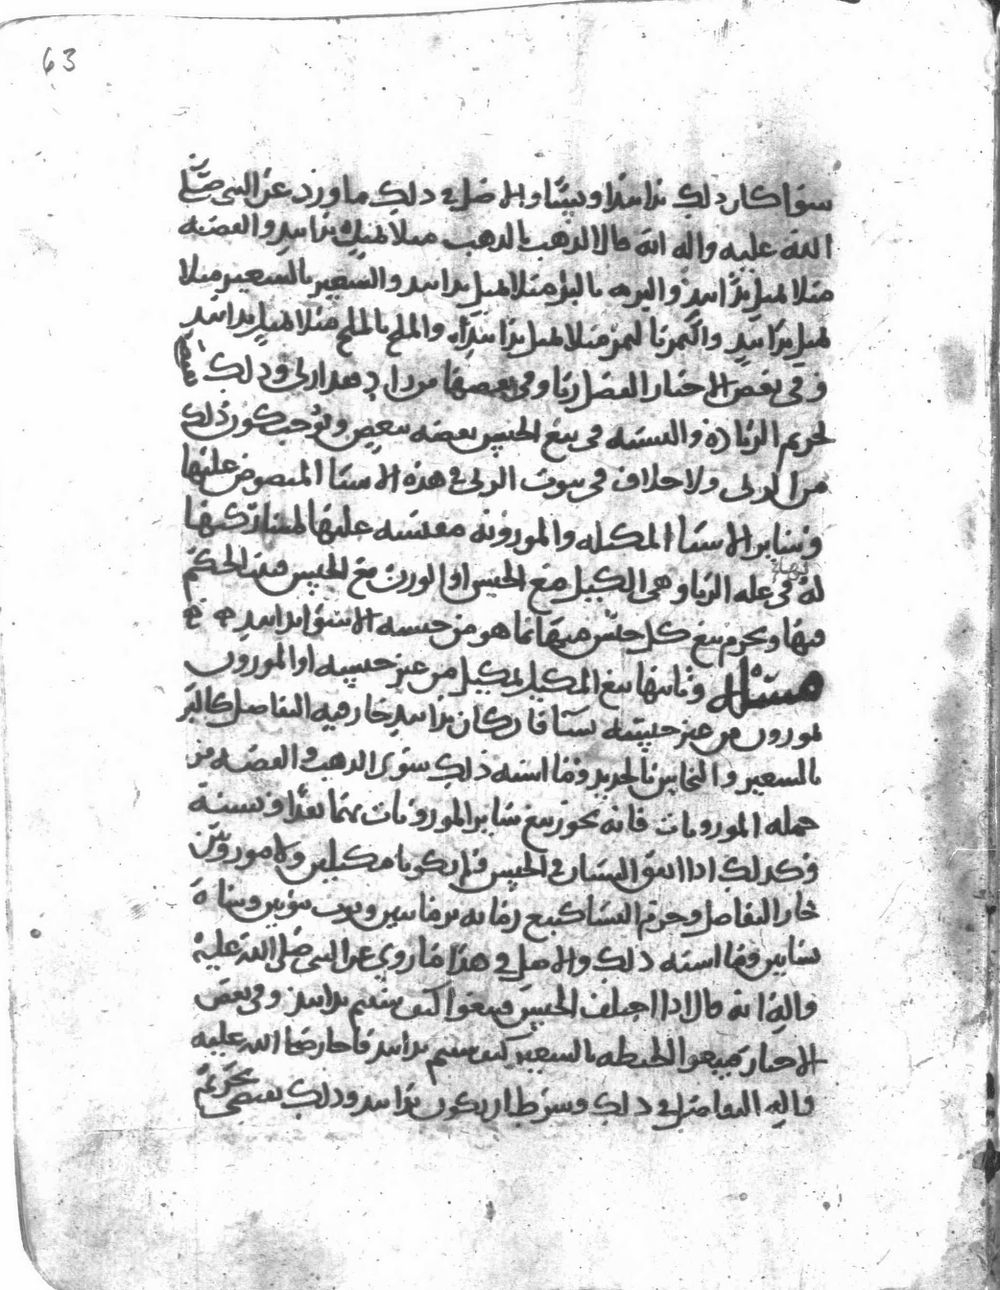 63
سوا كان ذلك نداسدا ونسئا والاصل في ذلك ما ورد عن النبي صلى
الله عليه واله انه قال الذهب بالذهب مثلا بمثل يدا بيد والفضه
مثلا بمثل يدا بيد والبر بالبر مثلا بمثل يدا بيد والشعير بالشعير مثلا
بمثل يدا بيد والتمر بالتمر مثلا بمثل يدا بيد والملح بالملح مثلا بمثل يدا بيد
وفي بعض الاخبار الفضل ربا وفي بعضها من زاد فقد اربى وذلك
تحريم الزياده والنسئه في بيع الجنس بعضه ببعض ويوجب كون ذلك
من الربى ولا خلاف في ثبوت الربى في هذه الاشيا المنصوص عليها
وساير الاشيا المكيله والموزونه مقيسه عليها لمشاركتها
له في عله الربا وهي الكيل مع الجنس او الوزن مع الجنس فيثبت الحكم
فيها ويحرم بيع كل جنس منها بما هو من جنسه الا سوا يدا بيد
مسئله وثانيها بيع المكيل بمكيل من غير جنسه او الموزون
بموزون من غير جنسه نسآ فان كان يدا بيد جاز فيه التفاضل كالبر
بالشعير والنحاس بالحديد وما اشبه ذلك سوى الذهب والفضه من
جمله الموزونات فانه يجوز بيع ساير الموزونات بهما نقدا ونسئة
وكذلك اذا اتفق الشيان في الجنس ولم يكونا مكيلين ولا موزونين
جاز التفاضل وحرم النسا كبيع رمانه برمانتين وثوب بثوبين وشاة
بشاتين وما اشبه ذلك والاصل في هذا ما روي عن النبي صلى الله عليه
واله انه قال اذا اختلف الجنس فبيعوا كيف شئتم يدا بيد وفي بعض
الاخبار فبيعوا الحنطه بالشعير كيف شئتم يدا بيد فاجاز صلى الله عليه
واله التفاضل في ذلك وشرط ان يكون يدا بيد وذلك يقتضي تحريم